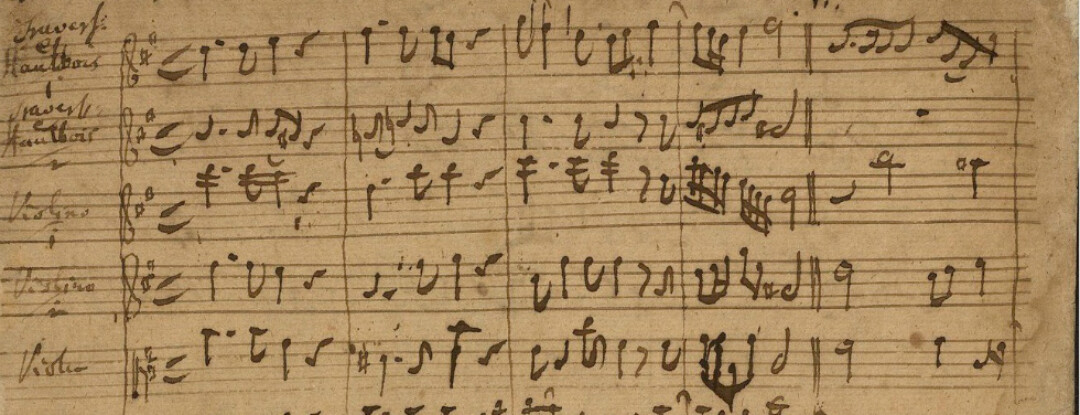 Travers:
et
Hautbois
1
Travers:
Hautbois
2
Violino
1
Violino
2
Viola